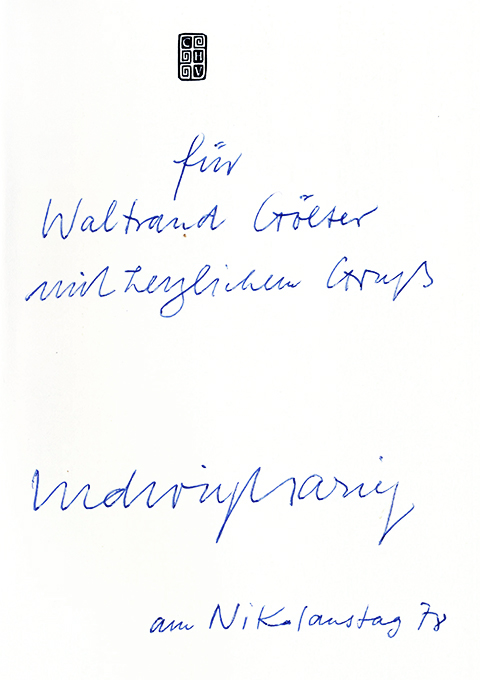 CHV
für
Waltraud Gölter
mit herzlichem Gruß
Ludwig Harig
am Nikolaustag 78